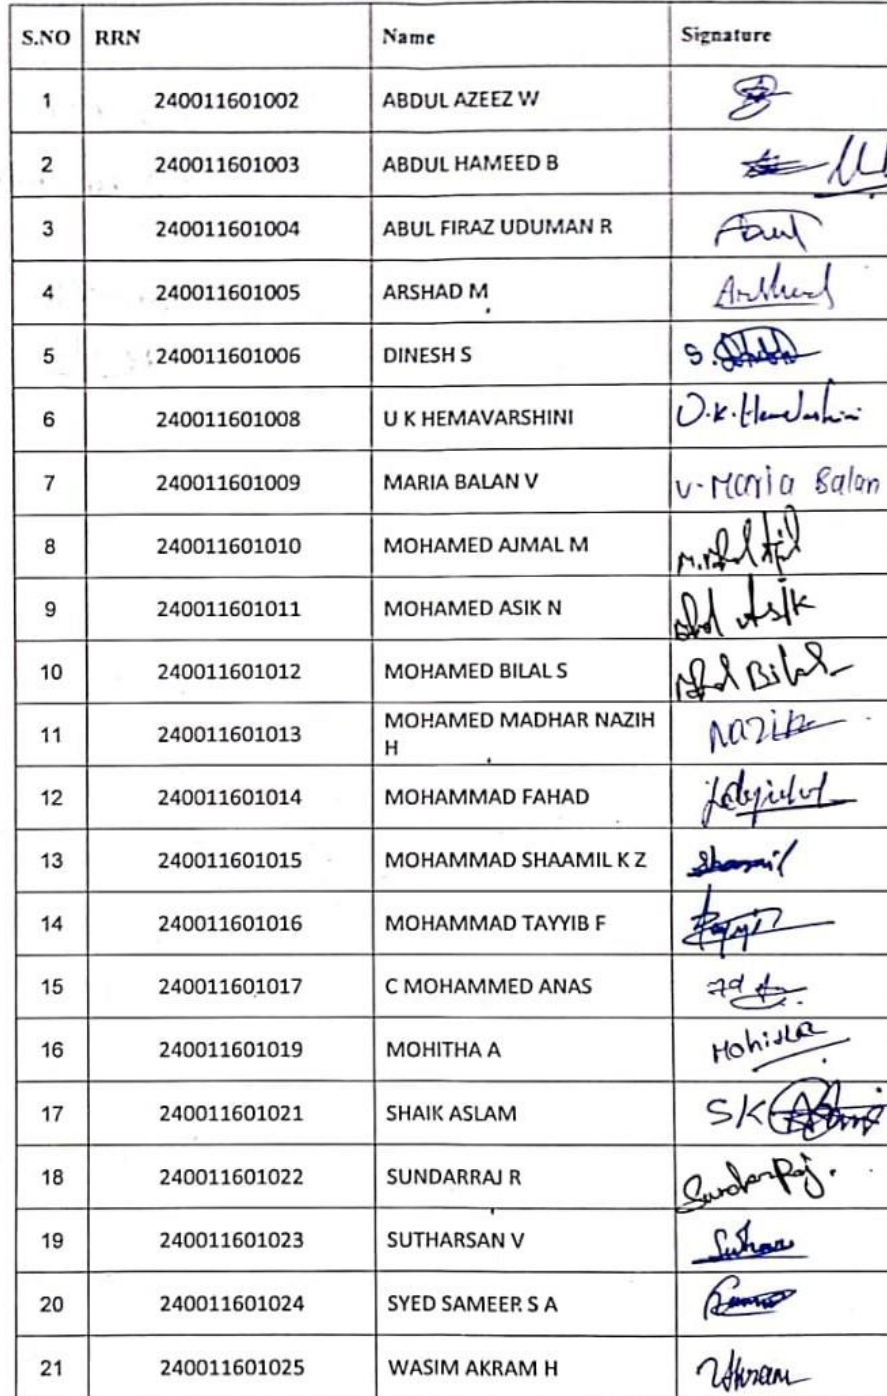 S.NO RRN Name Signature
1 240011601002 ABDUL AZEEZ W
2 240011601003 ABDUL HAMEED B
3 240011601004 ABUL FIRAZ UDUMAN R
4 240011601005 ARSHAD M Arshad
5 240011601006 DINESH S S.
6 240011601008 U K HEMAVARSHINI U.K.Hemavarshini
7 240011601009 MARIA BALAN V V-Maria Balan
8 240011601010 MOHAMED AJMAL M
9 240011601011 MOHAMED ASIK N Mhd Asik
10 240011601012 MOHAMED BILAL S Mhd Bilal
11 240011601013 MOHAMED MADHAR NAZIH
H Nazih
12 240011601014 MOHAMMAD FAHAD
13 240011601015 MOHAMMAD SHAAMIL K Z Shaamil
14 240011601016 MOHAMMAD TAYYIB F
15 240011601017 C MOHAMMED ANAS
16 240011601019 MOHITHA A Mohitha
17 240011601021 SHAIK ASLAM SK
18 240011601022 SUNDARRAJ R SundarRaj.
19 240011601023 SUTHARSAN V
20 240011601024 SYED SAMEER S A
21 240011601025 WASIM AKRAM H